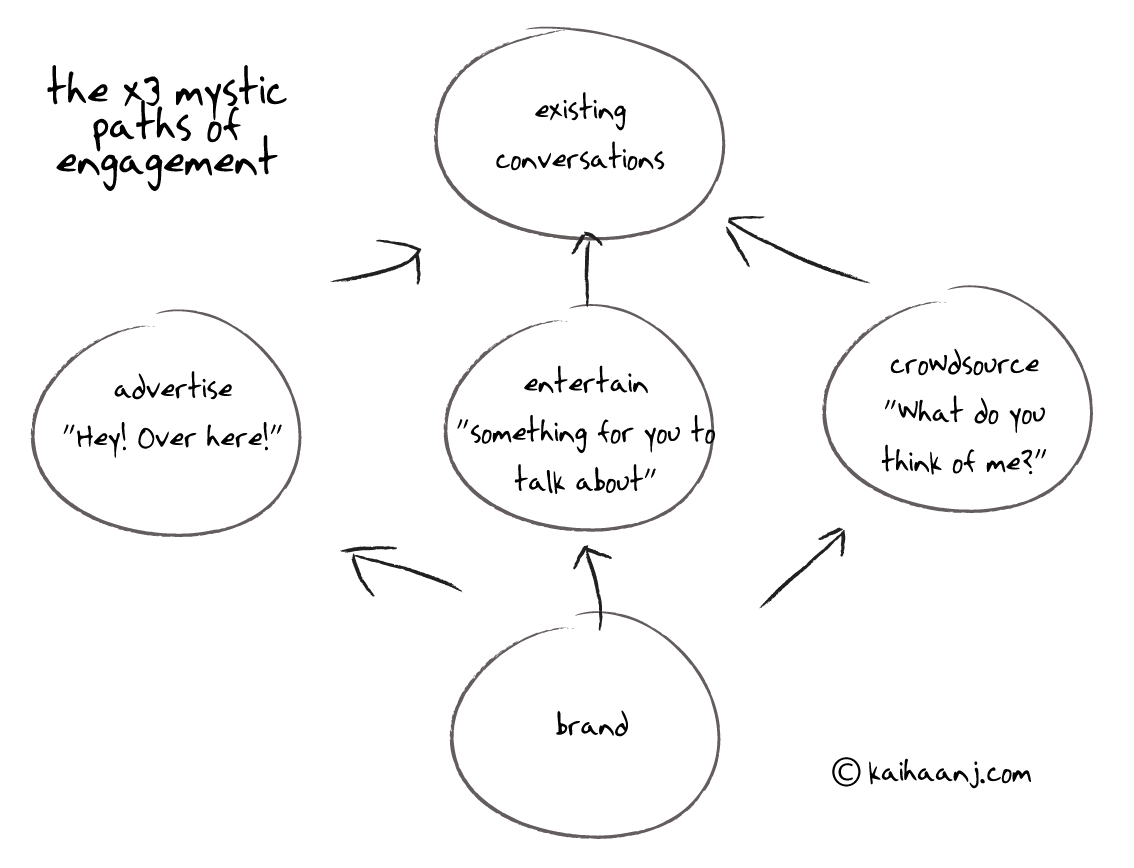 the x3 mystic
paths of
engagement
existing
conversations
advertise
"Hey! Over here!"
entertain
"something for you to
talk about"
crowdsource
"What do you
think of me?"
brand
© kaihaanj.com